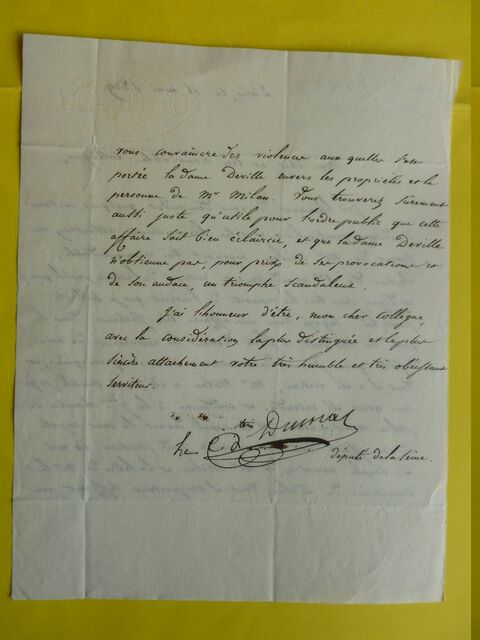 vous convaincre des violences aux quelles s'est
portée la dame Deville envers les propriétés et la
personne de Mr Milan. Vous trouverez surement
aussi juste qu'utile pour l'ordre public que cette
affaire soit bien éclaircie, et que la dame Deville
n'obtienne pas, pour prix de ses provocations et
de son audace, un triomphe scandaleux.
J'ai l'honneur d'être, mon cher collègue,
avec la considération la plus distinguée et le plus
sincère attachement votre très humble et très obéissant
serviteur.
Le
député de la Seine.